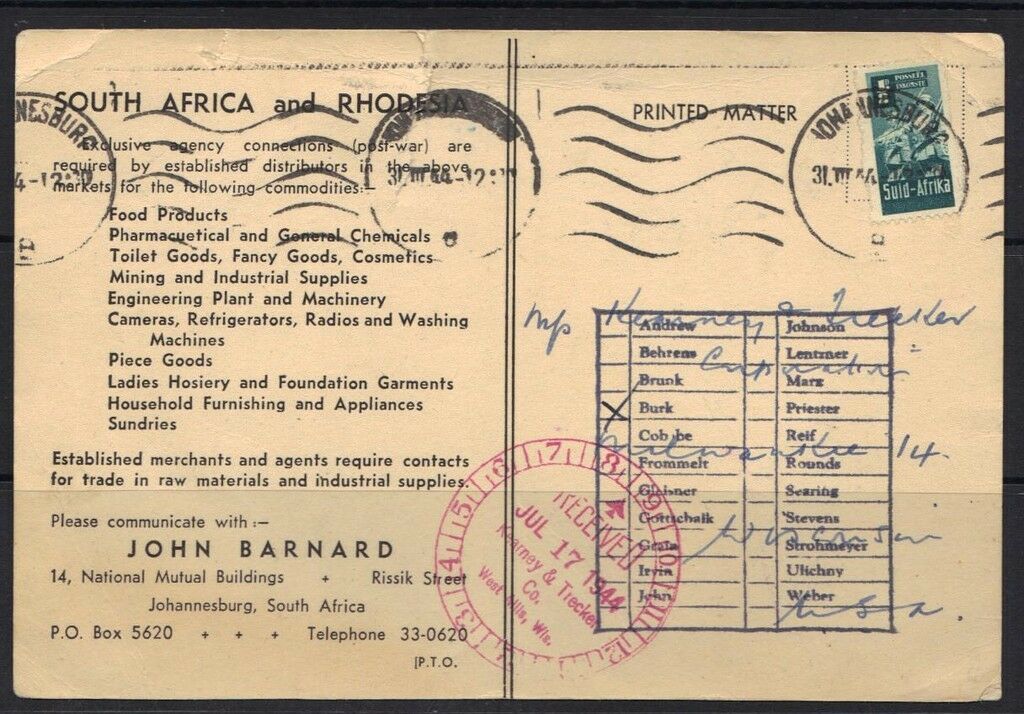 SOUTH AFRICA and RHODESIA
Exclusive agency connections (post-war) are
required by established distributors in the above
markets for the following commodities:—
Food Products
Pharmacuetical and General Chemicals
Toilet Goods, Fancy Goods, Cosmetics
Mining and Industrial Supplies
Engineering Plant and Machinery
Cameras, Refrigerators, Radios and Washing
Machines
Piece Goods
Ladies Hosiery and Foundation Garments
Household Furnishing and Appliances
Sundries
Established merchants and agents require contacts
for trade in raw materials and industrial supplies.
Please communicate with :—
JOHN BARNARD
14, National Mutual Buildings + Rissik Street
Johannesburg, South Africa
P.O. Box 5620 + + + Telephone 33-0620
[P.T.O.
NESBURG
4-12
31. III 44-12
PRINTED MATTER
JOHANNESBURG
31. III 44
POSSEËL
INKOMSTE
Suid-Afrika
Kearney & Trecker
Corporation
Milwaukee 14.
Wisconsin
U.S.A.
Andrew Johnson
Behrens Lentzner
Brunk Marx
X Burk Priester
Cobabe Reif
Frommelt Rounds
Gleisner Searing
Gottschalk Stevens
Strohmeyer
Irvin Ulichny
John Weber
3 4 5 6 7 8 9 10 11 12
RECEIVED
JUL 17 1944
Kearney & Trecker
Co.
West Allis, Wis.